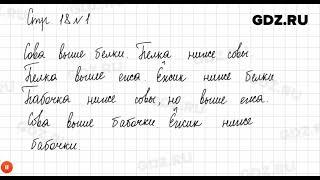 Стр. 18 № 1
GDZ.RU
Сова выше белки. Белка ниже совы.
Белка выше ежа. Ёжик ниже белки
Бабочка ниже совы, но выше ежа.
Сова выше бабочки. Ёжик ниже
бабочки.